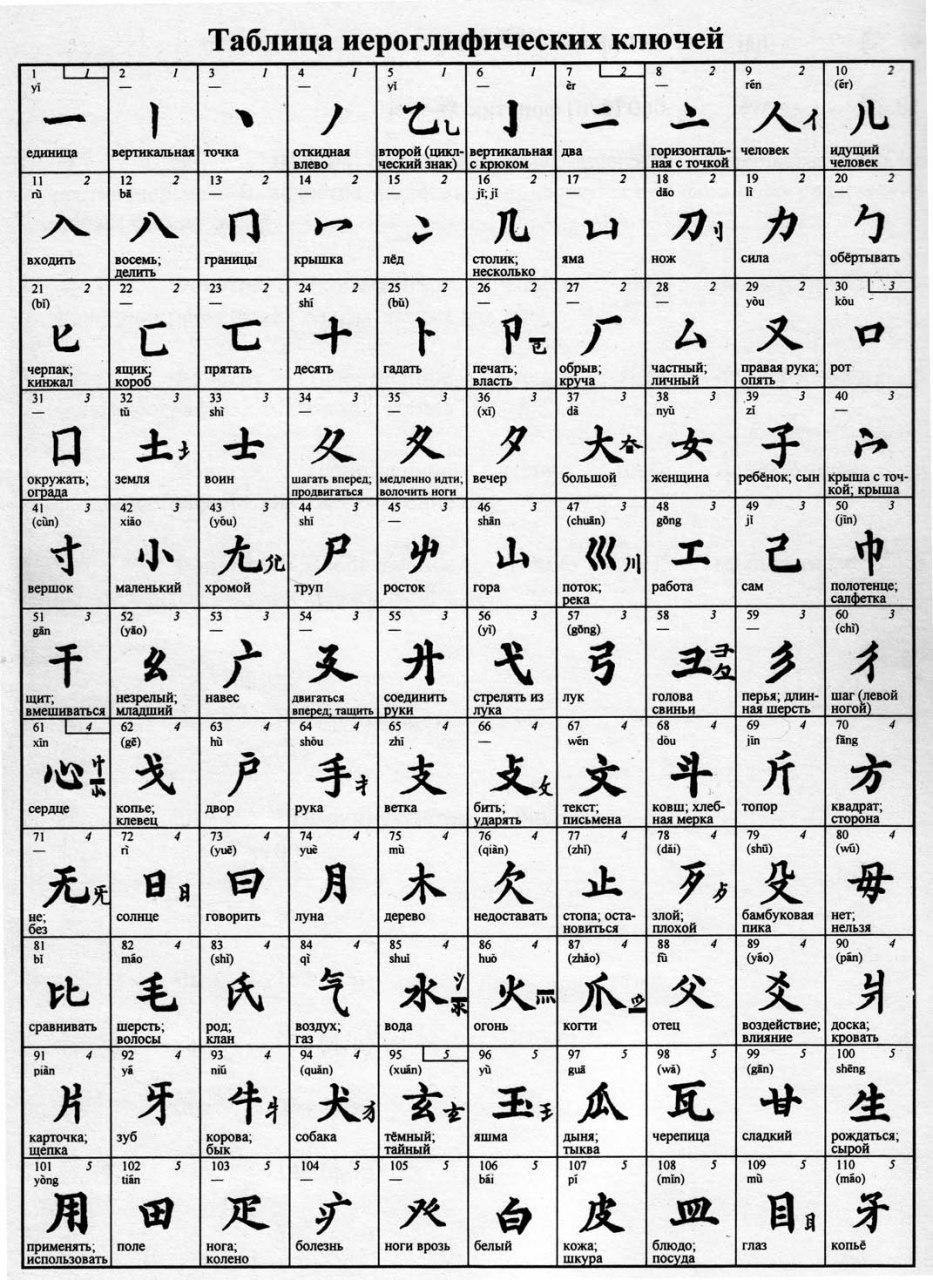 Таблица иероглифических ключей
1 1
yī
一
единица
2 1
—
丨
вертикальная
3 1
—
丶
точка
4 1
—
丿
откидная
влево
5 1
yǐ
乙乚
второй (цикл-
ческий знак)
6 1
—
亅
вертикальная
с крюком
7 2
èr
二
два
8 2
—
亠
горизонталь-
ная с точкой
9 2
rén
人亻
человек
10 2
(ér)
儿
идущий
человек
11 2
rù
入
входить
12 2
bā
八
восемь;
делить
13 2
—
冂
границы
14 2
—
冖
крышка
15 2
—
冫
лёд
16 2
jī; jǐ
几
столик;
несколько
17 2
—
凵
яма
18 2
dāo
刀刂
нож
19 2
lì
力
сила
20 2
—
勹
обёртывать
21 2
(bǐ)
匕
черпак;
кинжал
22 2
—
匚
ящик;
короб
23 2
—
匸
прятать
24 2
shí
十
десять
25 2
(bǔ)
卜
гадать
26 2
—
卩㔾
печать;
власть
27 2
—
厂
обрыв;
круча
28 2
—
厶
частный;
личный
29 2
yòu
又
правая рука;
опять
30 3
kǒu
口
рот
31 3
—
囗
окружать;
ограда
32 3
tǔ
土
земля
33 3
shì
士
воин
34 3
—
夂
шагать вперед;
продвигаться
35 3
—
夊
медленно идти;
волочить ноги
36 3
(xī)
夕
вечер
37 3
dà
大
большой
38 3
nyǔ
女
женщина
39 3
zǐ
子
ребёнок; сын
40 3
—
宀
крыша с точ-
кой; крыша
41 3
(cùn)
寸
вершок
42 3
xiǎo
小
маленький
43 3
(yóu)
尢
хромой
44 3
shī
尸
труп
45 3
—
屮
росток
46 3
shān
山
гора
47 3
(chuān)
巛川
поток;
река
48 3
gōng
工
работа
49 3
jǐ
己
сам
50 3
(jīn)
巾
полотенце;
салфетка
51 3
gān
干
щит;
вмешиваться
52 3
(yāo)
幺
незрелый;
младший
53 3
—
广
навес
54 3
—
廴
двигаться
вперед; тащить
55 3
—
廾
соединить
руки
56 3
(yì)
弋
стрелять из
лука
57 3
(gōng)
弓
лук
58 3
—
彐彑
голова
свиньи
59 3
—
彡
перья; длин-
ная шерсть
60 3
(chì)
彳
шаг (левой
ногой)
61 4
xīn
心忄㣺
сердце
62 4
(gē)
戈
копье;
клевец
63 4
hù
戸
двор
64 4
shǒu
手扌
рука
65 4
zhī
支
ветка
66 4
—
攴攵
бить;
ударять
67 4
wén
文
текст;
письмена
68 4
dǒu
斗
ковш; хлеб-
ная мерка
69 4
jīn
斤
топор
70 4
fāng
方
квадрат;
сторона
71 4
—
无旡
не;
без
72 4
rì
日
солнце
73 4
(yuē)
曰
говорить
74 4
yuè
月
луна
75 4
mù
木
дерево
76 4
(qiàn)
欠
недоставать
77 4
(zhǐ)
止
стопа; оста-
новиться
78 4
(dǎi)
歹歺
злой;
плохой
79 4
(shū)
殳
бамбуковая
пика
80 4
(wú)
毋
нет;
нельзя
81 4
bǐ
比
сравнивать
82 4
máo
毛
шерсть;
волосы
83 4
(shì)
氏
род;
клан
84 4
qì
气
воздух;
газ
85 4
shuǐ
水氵氺
вода
86 4
huǒ
火灬
огонь
87 4
(zhǎo)
爪爫
когти
88 4
fù
父
отец
89 4
(yáo)
爻
воздействие;
влияние
90 4
(pán)
爿
доска;
кровать
91 4
piàn
片
карточка;
щепка
92 4
yá
牙
зуб
93 4
niú
牛牜
корова;
бык
94 4
(quǎn)
犬犭
собака
95 5
(xuán)
玄
тёмный;
тайный
96 5
yù
玉王
яшма
97 5
guā
瓜
дыня;
тыква
98 5
(wǎ)
瓦
черепица
99 5
(gān)
甘
сладкий
100 5
shēng
生
рождаться;
сырой
101 5
yòng
用
применять;
использовать
102 5
tián
田
поле
103 5
—
疋
нога;
колено
104 5
—
疒
болезнь
105 5
—
癶
ноги врозь
106 5
bái
白
белый
107 5
pí
皮
кожа;
шкура
108 5
(mǐn)
皿
блюдо;
посуда
109 5
mù
目
глаз
110 5
(máo)
矛
копьё